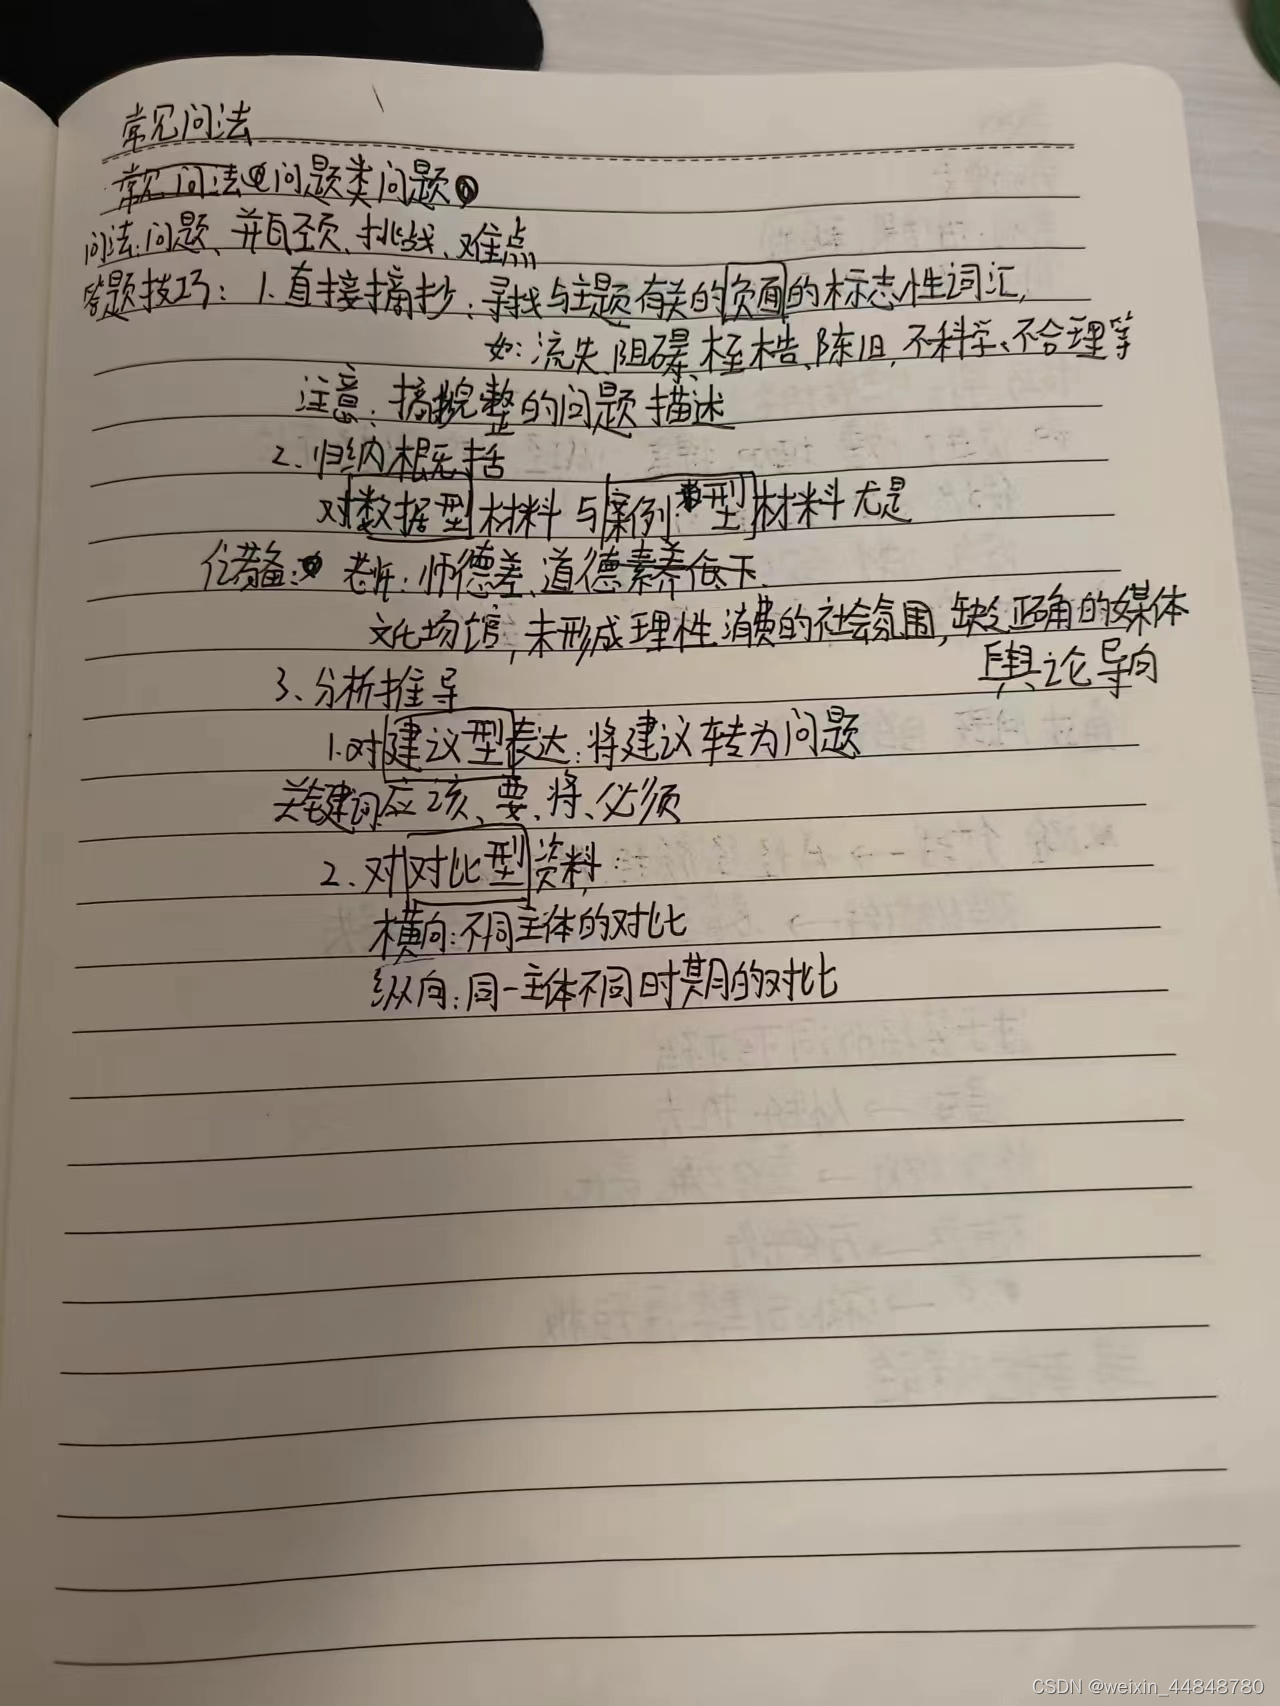 常见问法
常见问法 问题类问题
问法:问题、并瓦颈、挑战、难点
答题技巧:1.直接摘抄:寻找与主题有关的负面的标志性词汇,
如:流失、阻碍、桎梏、陈旧,不科学、不合理等
注意:摘抄完整的问题描述
2.归纳概括
对数据型材料与案例型材料尤是
储备: 老师:师德差、道德素养低下.
文化场馆,未形成理性消费的社会氛围,缺乏正确的媒体
舆论导向
3、分析推导
1.对建议型表达:将建议转为问题
关键词应该、要、将、必须
2.对对比型资料:
横向:不同主体的对比
纵向:同一主体不同时期的对比
CSDN @weixin_44848780